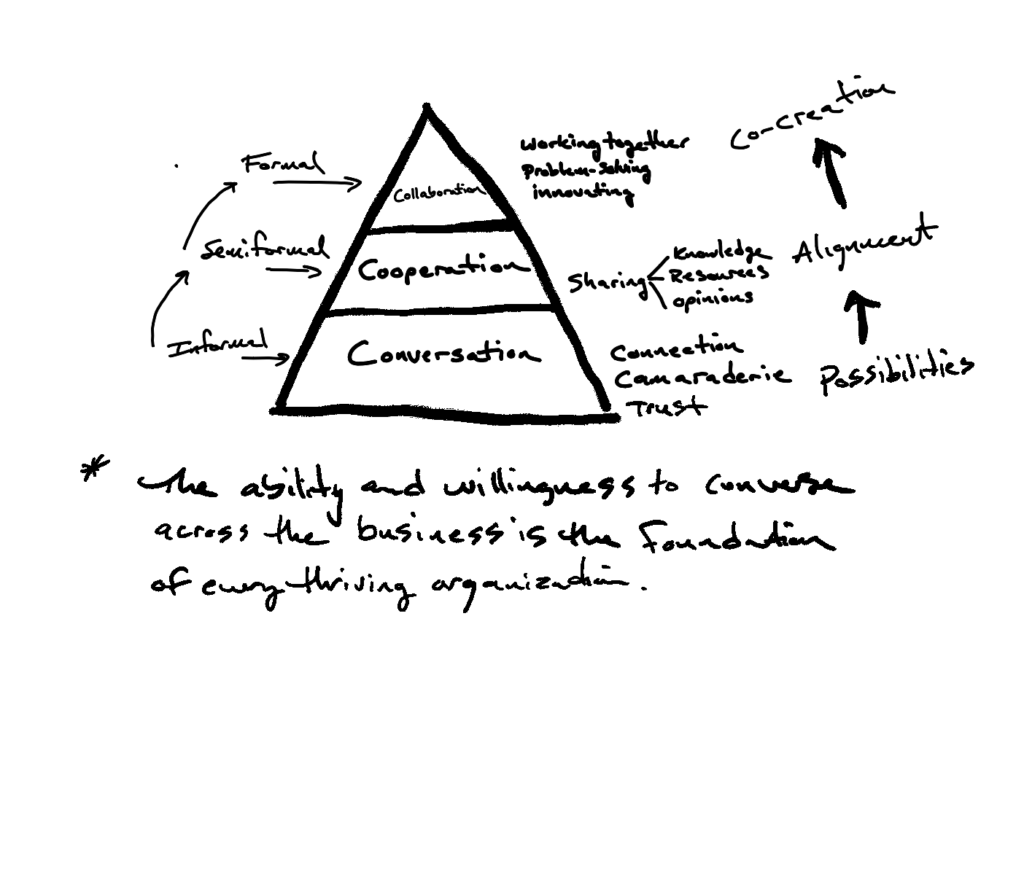 Co-creation
Formal
Collaboration
Working together
Problem-Solving
innovating
Semiformal
Cooperation
Sharing
Knowledge
Resources
opinions
Alignment
Informal
Conversation
Connection
Camaraderie
Trust
Possibilities
* The ability and willingness to converse
across the business is the Foundation
of every thriving organization.